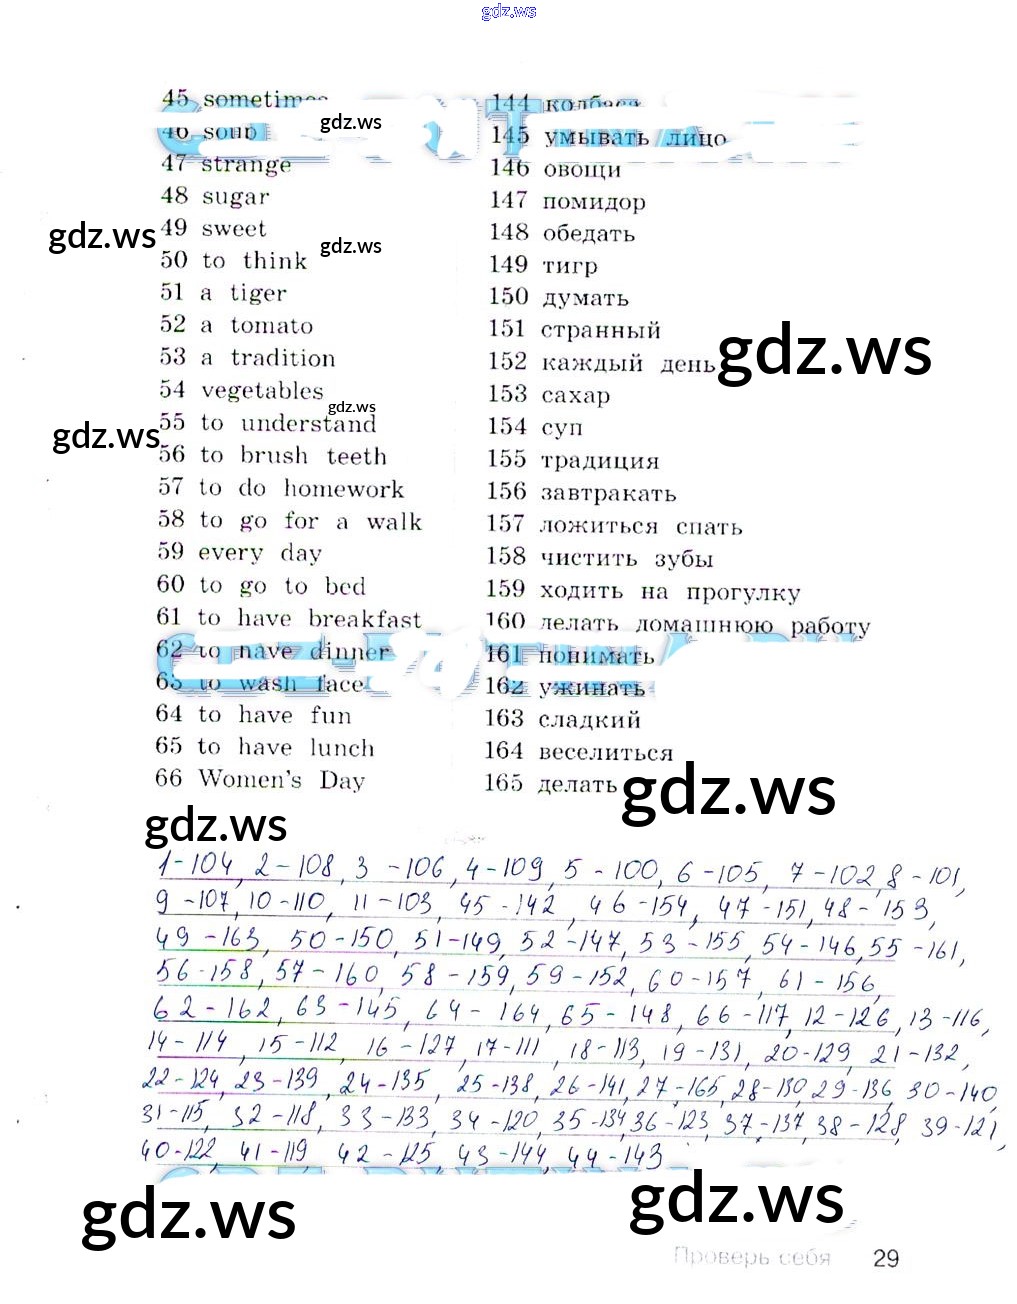 gdz.ws
45 sometimes
46 soup
gdz.ws
47 strange
48 sugar
49 sweet
gdz.ws
gdz.ws
50 to think
51 a tiger
52 a tomato
53 a tradition
54 vegetables
gdz.ws
55 to understand
gdz.ws
56 to brush teeth
57 to do homework
58 to go for a walk
59 every day
60 to go to bed
61 to have breakfast
62 to have dinner
63 to wash face
64 to have fun
65 to have lunch
66 Women's Day
144 колбаса
145 умывать лицо
146 овощи
147 помидор
148 обедать
149 тигр
150 думать
151 странный
152 каждый день
gdz.ws
153 сахар
154 суп
155 традиция
156 завтракать
157 ложиться спать
158 чистить зубы
159 ходить на прогулку
160 делать домашнюю работу
161 понимать
162 ужинать
163 сладкий
164 веселиться
165 делать
gdz.ws
gdz.ws
1-104, 2-108, 3-106, 4-109, 5-100, 6-105, 7-102, 8-101,
9-107, 10-110, 11-103, 45-142, 46-154, 47-151, 48-153,
49-163, 50-150, 51-149, 52-147, 53-155, 54-146, 55-161,
56-158, 57-160, 58-159, 59-152, 60-157, 61-156,
62-162, 63-145, 64-164, 65-148, 66-117, 12-126, 13-116,
14-114, 15-112, 16-127, 17-111, 18-113, 19-131, 20-129, 21-132,
22-124, 23-139, 24-135, 25-138, 26-141, 27-165, 28-130, 29-136, 30-140,
31-115, 32-118, 33-133, 34-120, 35-134, 36-123, 37-137, 38-128, 39-121,
40-122, 41-119, 42-125, 43-144, 44-143
gdz.ws
gdz.ws
Проверь себя 29